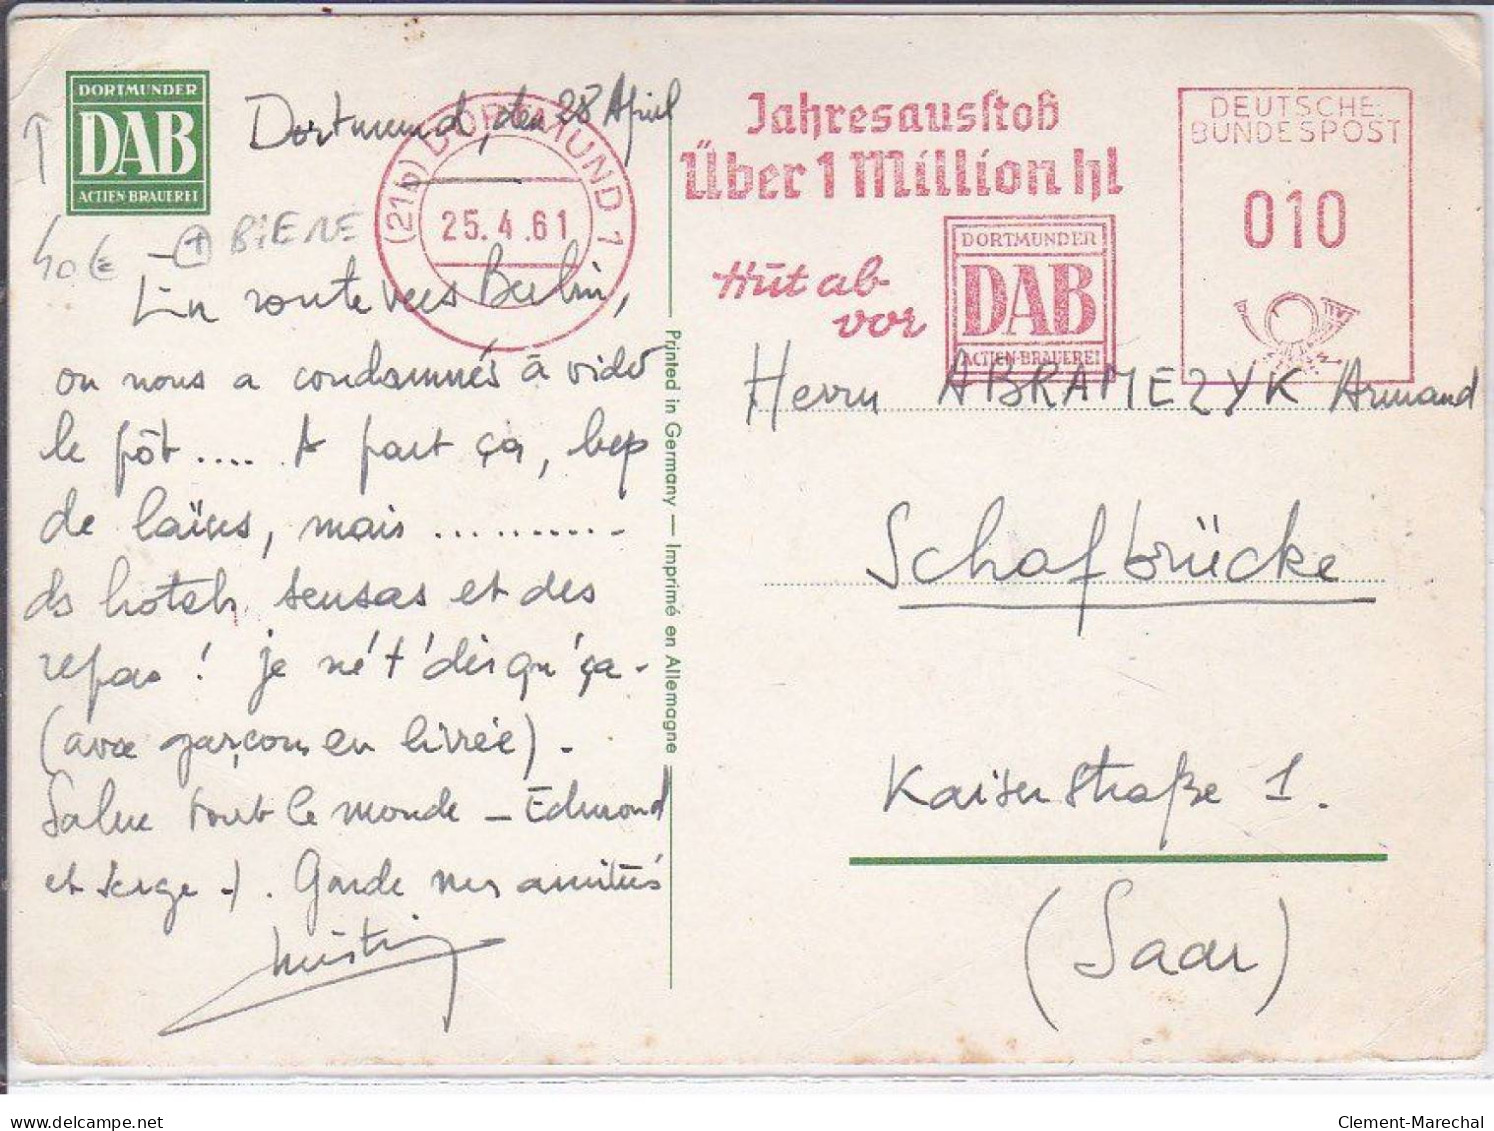 DORTMUNDER
DAB
ACTIEN-BRAUEREI
Dortmund, den 28 April
40 €
+ BIERE
En route vers Berlin,
on nous a condamnés à vider
le pôt .... A part ça, bep
de laïus, mais ..........
ds hotels sensas et des
repas ! je né t'dis qu'ça -
(avec garçons en livrée) -
Salue tout le monde - Edmond
et Serge -). Garde nos amitiés
(21b) DORTMUND 1
25.4.61
Jahresausstoß
Über 1 Million hl
Hut ab
vor
DORTMUNDER
DAB
ACTIEN-BRAUEREI
DEUTSCHE
BUNDESPOST
010
Printed in Germany — Imprimé en Allemagne
Herrn ABRAMEZYK Armand
Schafbrücke
Kaiserstraße 1.
(Saar)
delcampe.net
Clement-Marechal